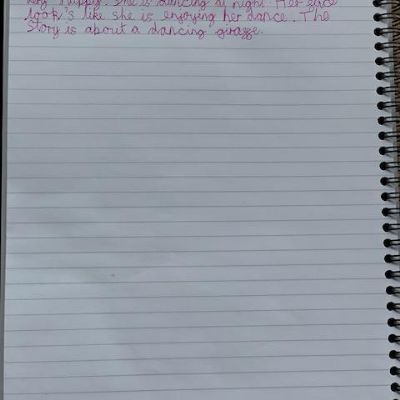 very happy. She is dancing at night. Her face
look's like she is enjoying her dance. The
Story is about a dancing giraffe.